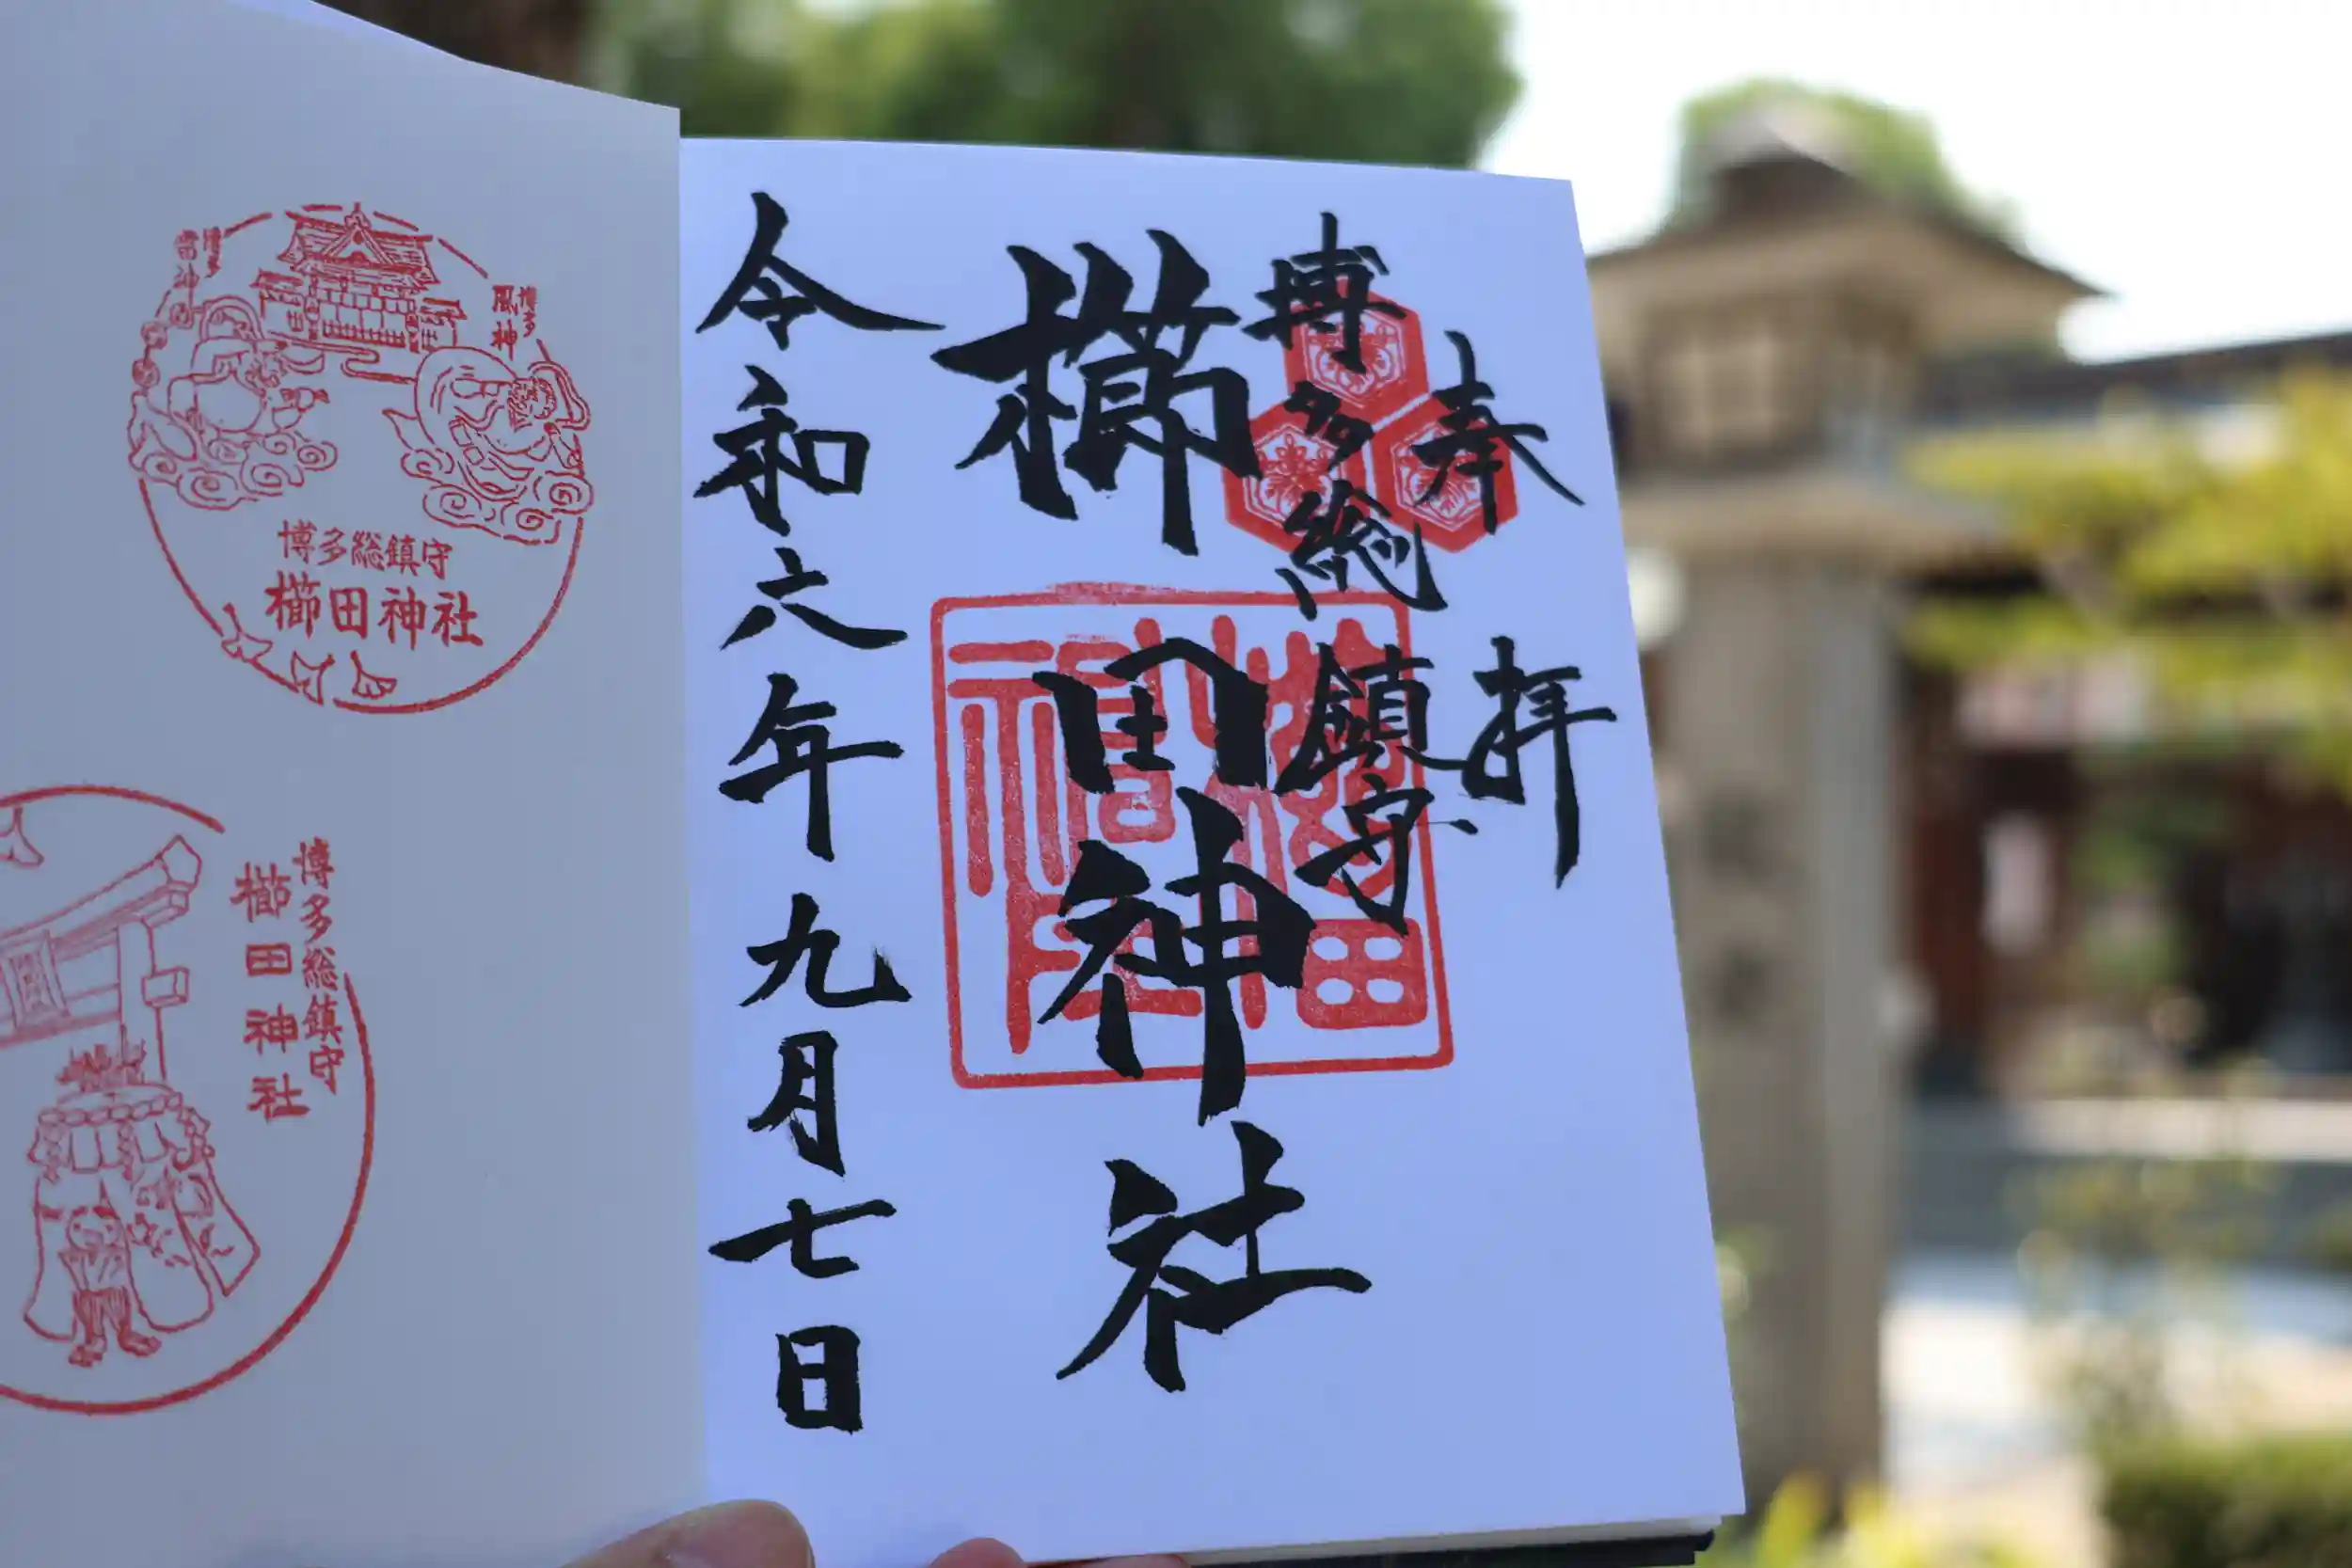 奉拝
博多総鎮守
櫛田神社
令和六年九月七日
博多
風神
博多
雷神
博多総鎮守
櫛田神社
博多総鎮守
櫛田神社